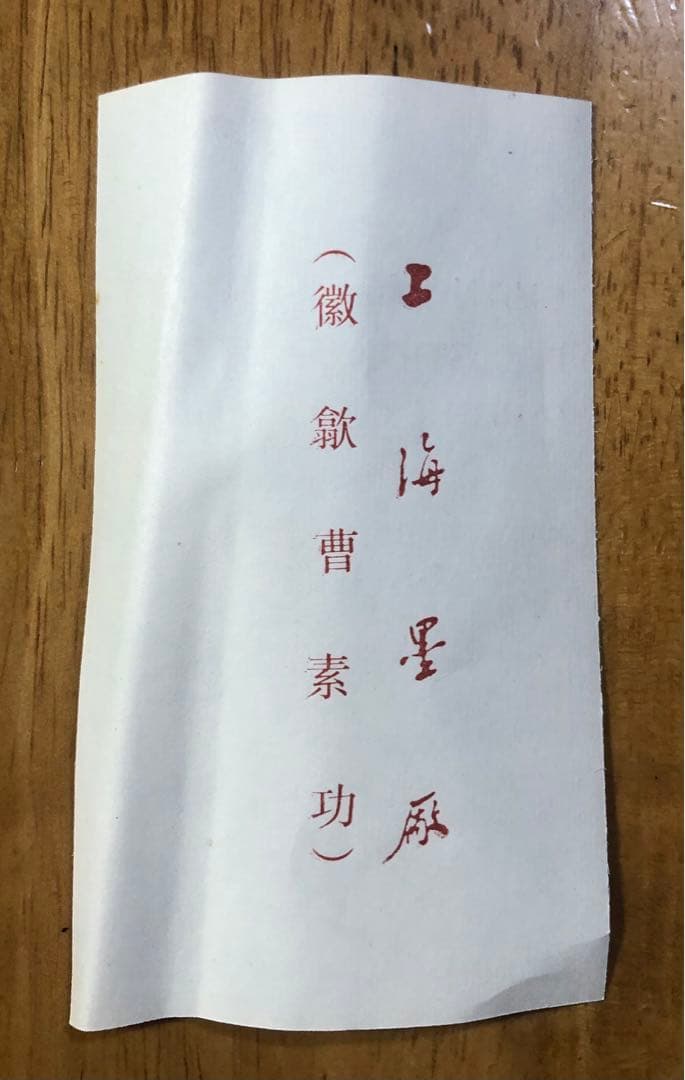 上海墨厰
（徽歙曹素功）